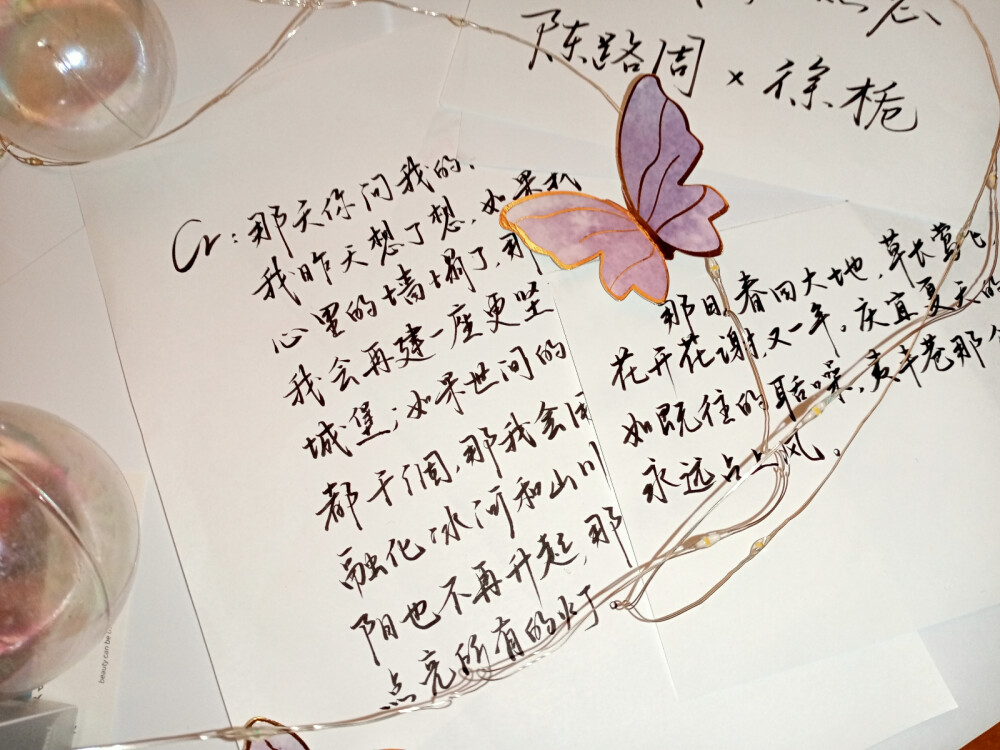 陈路周×徐栀
Cr：那天你问我的、
我昨天想了想，如果我
心里的墙塌了，那
我会再建一座更坚
城堡；如果世间的
都干涸，那我会用
融化冰河和山川
阳也不再升起，那
点亮所有的灯
那日春回大地，草长莺飞，
花开花谢，又一年。庆宜夏天的
如既往的聒噪，夷丰巷那个
永远占上风。
beauty can be